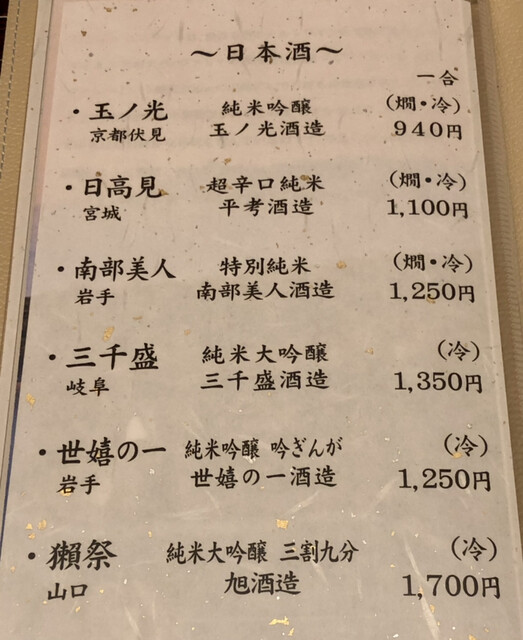 ～日本酒～
一合
・玉ノ光 純米吟醸 (燗・冷)
京都伏見 玉ノ光酒造 940円
・日高見 超辛口純米 (燗・冷)
宮城 平考酒造 1,100円
・南部美人 特別純米 (燗・冷)
岩手 南部美人酒造 1,250円
・三千盛 純米大吟醸 (冷)
岐阜 三千盛酒造 1,350円
・世嬉の一 純米吟醸 吟ぎんが (冷)
岩手 世嬉の一酒造 1,250円
・獺祭 純米大吟醸 三割九分 (冷)
山口 旭酒造 1,700円